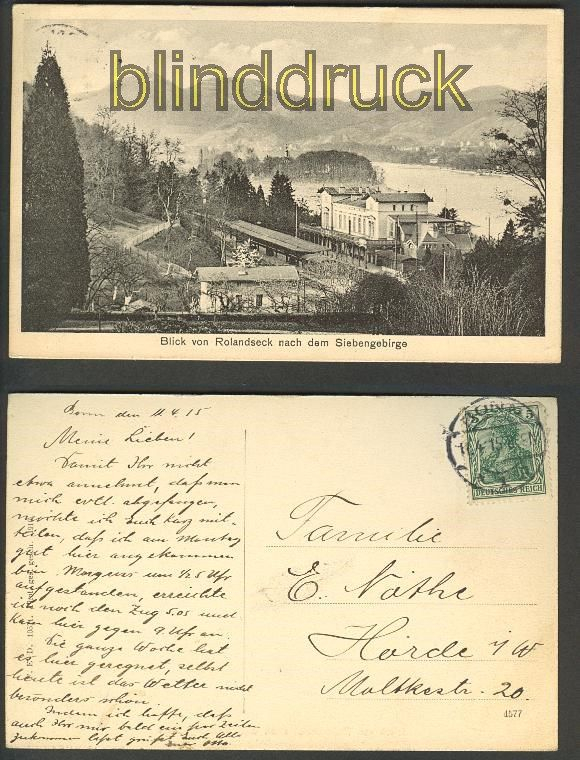 blinddruck
Blick von Rolandseck nach dem Siebengebirge
Bonn den 11.4.15
Meine Lieben!
Damit Ihr nicht
etwa annehmt, daß man
mich evtl. abgefangen,
möchte ich Euch kurz mit-
teilen, daß ich am Montag
gut hier angekommen
bin. Morgens um 1/2 5 Uhr
aufgestanden, erreichte
ich noch den Zug 5.05 und
kam hier gegen 9 Uhr an.
Die ganze Woche hat
es hier geregnet, selbst
heute ist das Wetter nicht
besonders schön.
Indem ich hoffe, daß
auch Ihr mir bald ein paar Zeilen
zukommen laßt grüßt Euch Alle
Euer Otto.
DEUTSCHES REICH
Familie
E. Nöthe
Hörde i/W
Moltkestr. 20.
4577